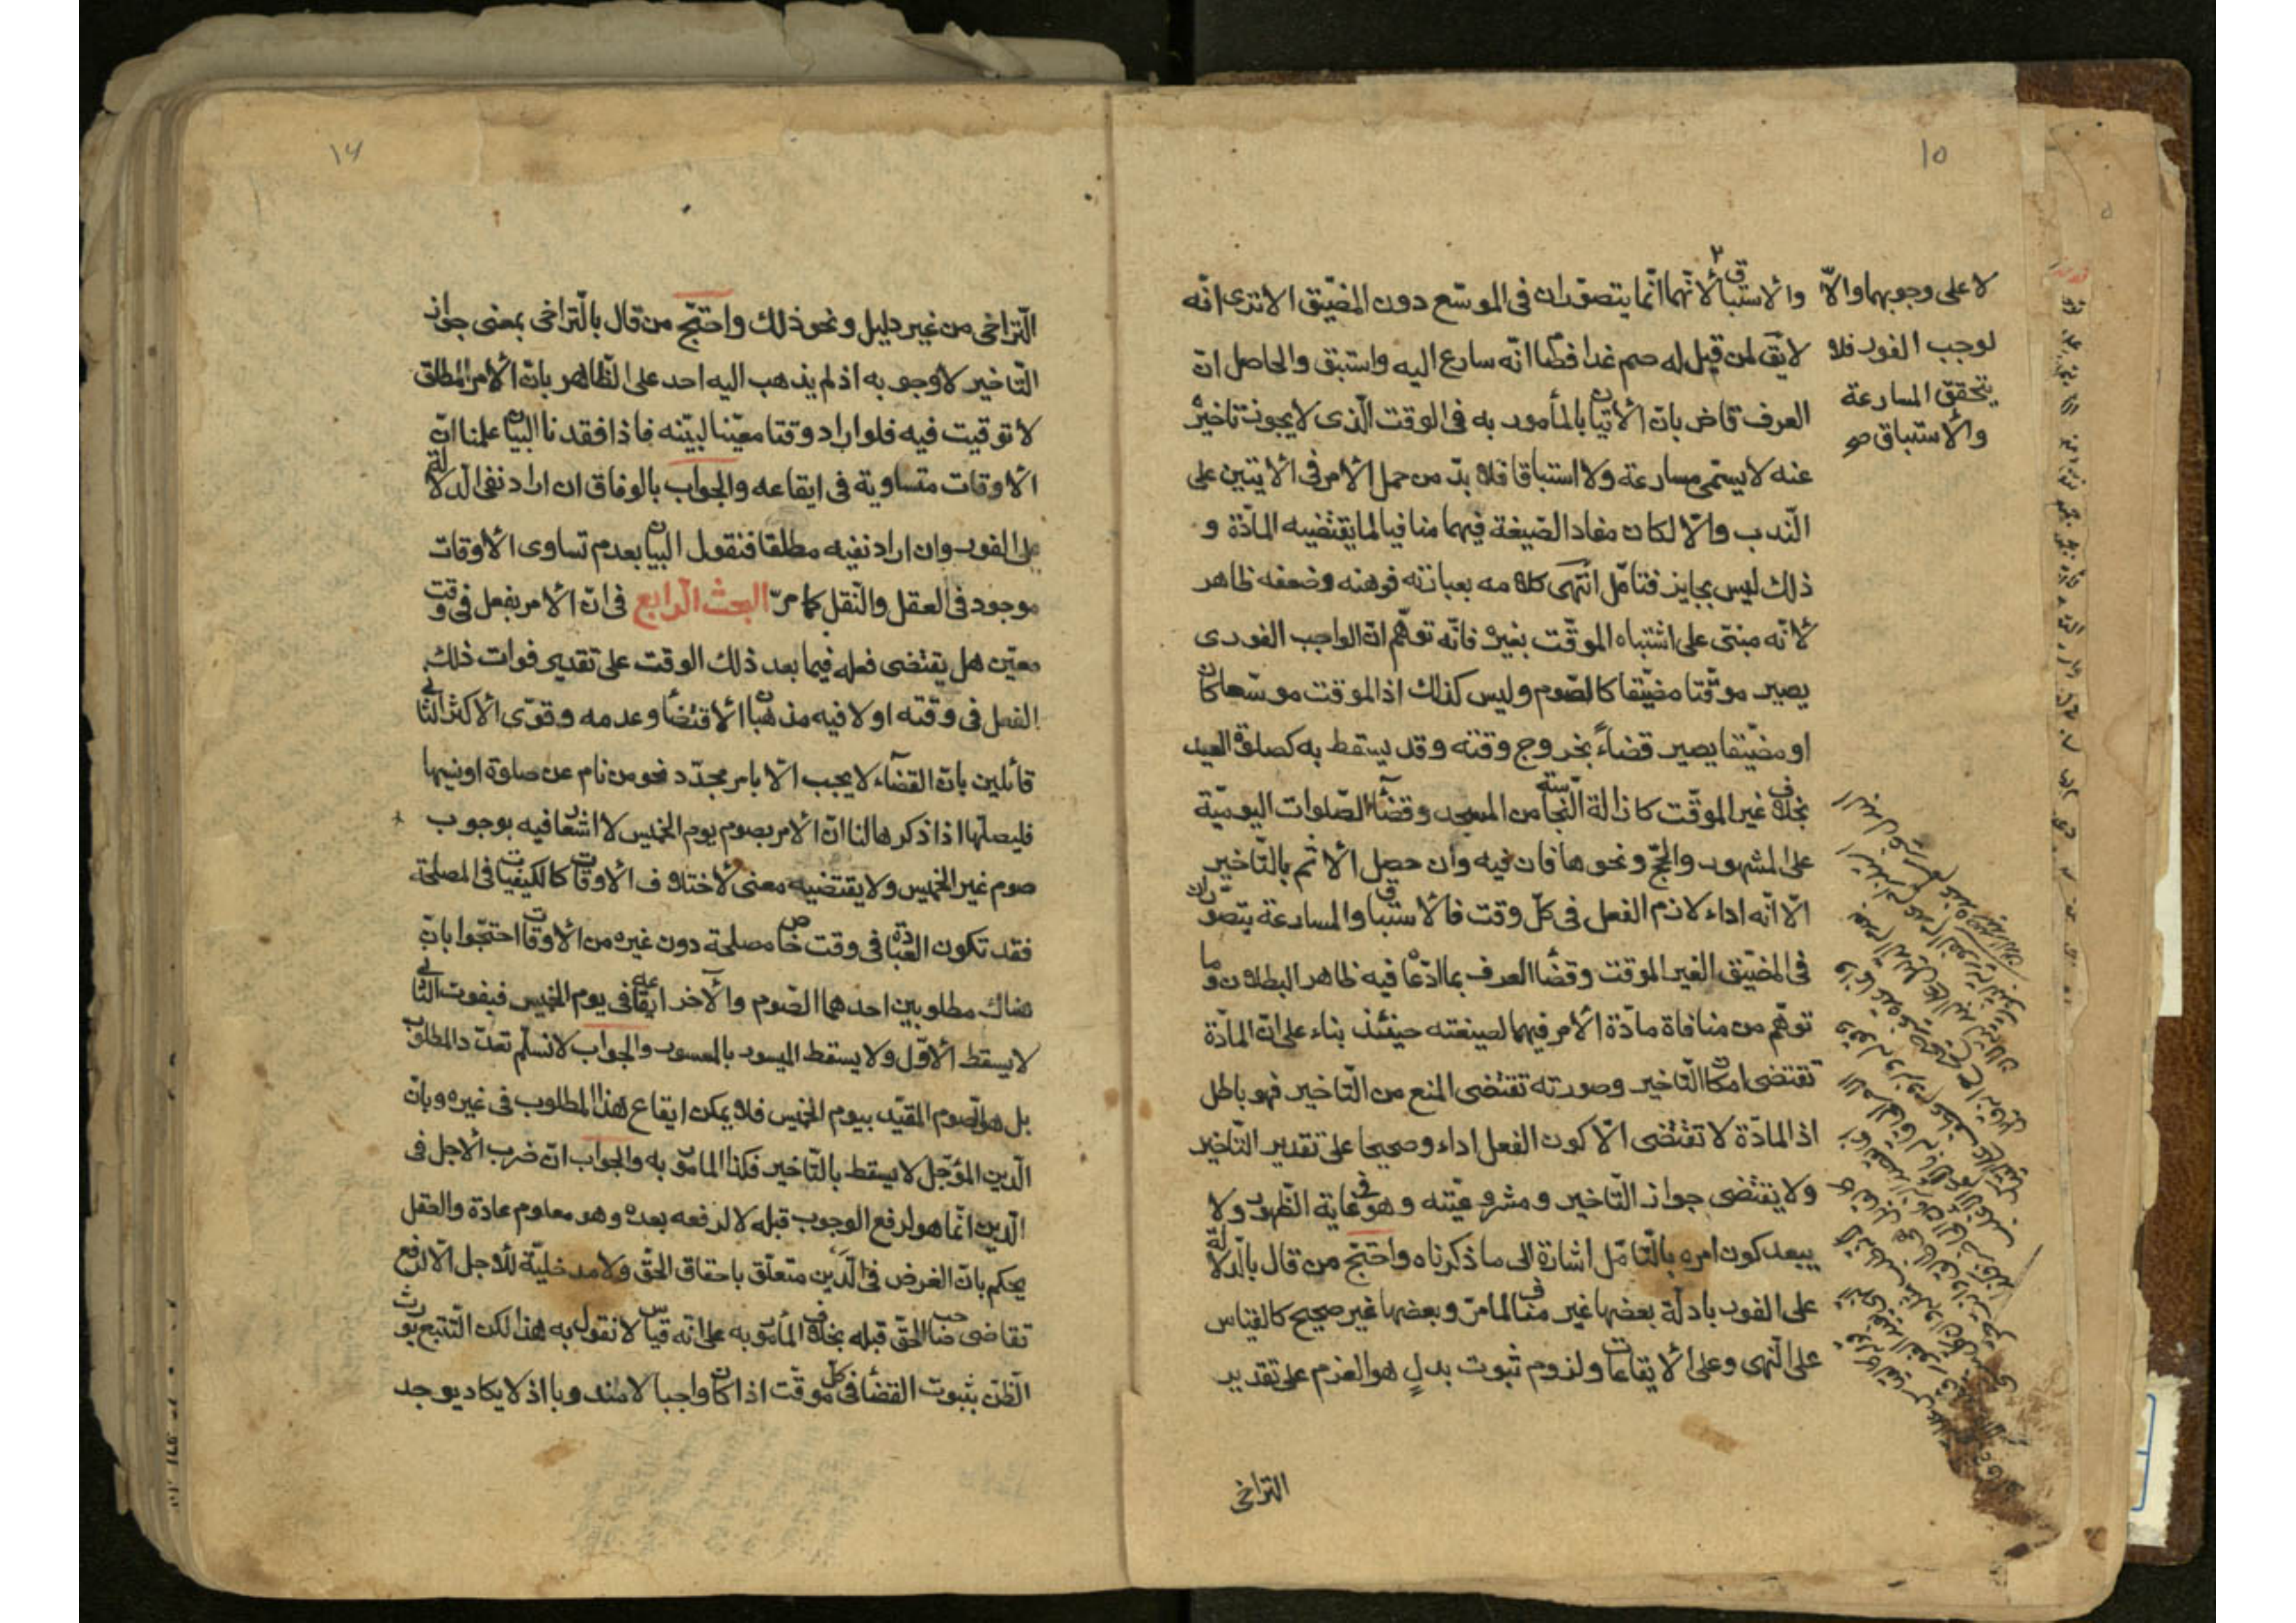 ١٥
والاستباق لأنهما انّما يتصوّران فى الموسّع دون المضيّق الا ترى انّه
لا يق لمن قيل له صم غدا فصام انّه سارع اليه واستبق والحاصل انّ
العرف قاض بانّ الأتيان بالمأمور به فى الوقت الّذى لا يجوز تاخيره
عنه لا يسمّى مسارعة ولا استباقا فلا بدّ من حمل الأمر فى الايتين على
النّدب والّا لكان مفاد الصّيغة فيهما منافيا لما يقتضيه المادّة و
ذلك ليس بجايز فتامّل انتهى كلامه بعبارته فوهنه وضعفه ظاهر
لأنّه مبنىّ على اشتباه الموقّت بغيره فانّه توهّم انّ الواجب الفورى
يصير موقّتا مضيّقا كالصّوم وليس كذلك اذ الموقت موسّعا كان
او مضيّقا يصير قضاءً بخروج وقته وقد يسقط به كصلوة العيد
بخلاف غير الموقّت كازالة النّجاسة من المسجد وقضاء الصّلوات اليوميّة
على المشهور والحجّ ونحوها فان فيه وان حصل الأثم بالتّاخير
الّا انّه اداء لازم الفعل فى كلّ وقت فالأستباق والمسارعة يتصوّران
فى المضيّق الغير الموقت وقضاء العرف بما ادّعاه فيه ظاهر البطلان وما
توهّم من منافاة مادّة الأمر فيهما لصيغته حينئذ بناء على انّ المادّة
تقتضى امكان التّاخير وصورته تقتضى المنع من التّاخير فهو باطل
اذ المادّة لا تقتضى الّا كون الفعل اداء وصحيحا على تقدير التّاخير
ولا يقتضى جواز التّاخير ومشروعيّته وهو فى غاية الظّهور ولا
يبعد كون امره بالتّامّل اشارة الى ما ذكرناه واحتجّ من قال بالّدلالة
على الفور بادلّة بعضها غير مناف لما مرّ وبعضها غير صحيح كالقياس
على النّهى وعلى الأيقاعات ولزوم ثبوت بدلٍ هو العزم على تقدير
التراخى
لا على وجوبهما والّا
لوجب الفور فلا
يتحقّق المسارعة
والأستباق صح
١٤
الّتراخى من غير دليل ونحو ذلك واحتجّ من قال بالّتراخى بمعنى جواز
التّاخير لا وجوبه اذ لم يذهب اليه احد على الظّاهر بانّ الأمر المطلق
لا توقيت فيه فلو اراد وقتا معيّنا لبيّنه فاذا فقدنا البيان علمنا انّ
الأوقات متساوية فى ايقاعه والجواب بالوفاق ان اراد نفى الّدلالة
على الفور وان اراد نفيه مطلقا فنقول البيان بعدم تساوى الأوقات
موجود فى العقل والنّقل كما مرّ البحث الّرابع فى انّ الأمر بفعل فى وقت
معيّن هل يقتضى فعله فيما بعد ذلك الوقت على تقدير فوات ذلك
الفعل فى وقته او لا فيه مذهبان الأقتضاء وعدمه وقوّى الأكثر الثّانى
قائلين بانّ القضاء لا يجب الّا بامر مجدّد نحو من نام عن صلوة او نسيها
فليصلّها اذا ذكرها لنا انّ الأمر بصوم يوم الخميس لا اشعار فيه بوجوب
صوم غير الخميس ولا يقتضيه معنى لأختلاف الأوقات كالكيفيات فى المصلحة
فقد تكون العبادة فى وقت خاص مصلحة دون غيره من الأوقات احتجّوا بانّ
هناك مطلوبين احدهما الصّوم والأخر ايقاعه فى يوم الخميس فبفوت الثّانى
لا يسقط الأوّل ولا يسقط الميسور بالمعسور والجواب لا نسلّم تعدّد المطلوب
بل هو الصّوم المقيّد بيوم الخميس فلا يمكن ايقاع هذا المطلوب فى غيره وبانّ
الّدين المؤجّل لا يسقط بالتّاخير فكذا المامور به والجواب انّ ضرب الأجل فى
الّدين انّما هو لرفع الوجوب قبله لا لرفعه بعده وهو معلوم عادة والعقل
يحكم بانّ الغرض فى الّدين متعلّق باحقاق الحقّ ولا مدخليّة للأجل الّا لرفع
تقاضى صاحب الحقّ قبله بخلاف المأمور به على انّه قياس لا نقول به هذا لكن التّتبع يورث
الظّن بثبوت القضاء فى كلّ موقّت اذا كان واجبا لا مندوبا اذ لا يكاد يوجد